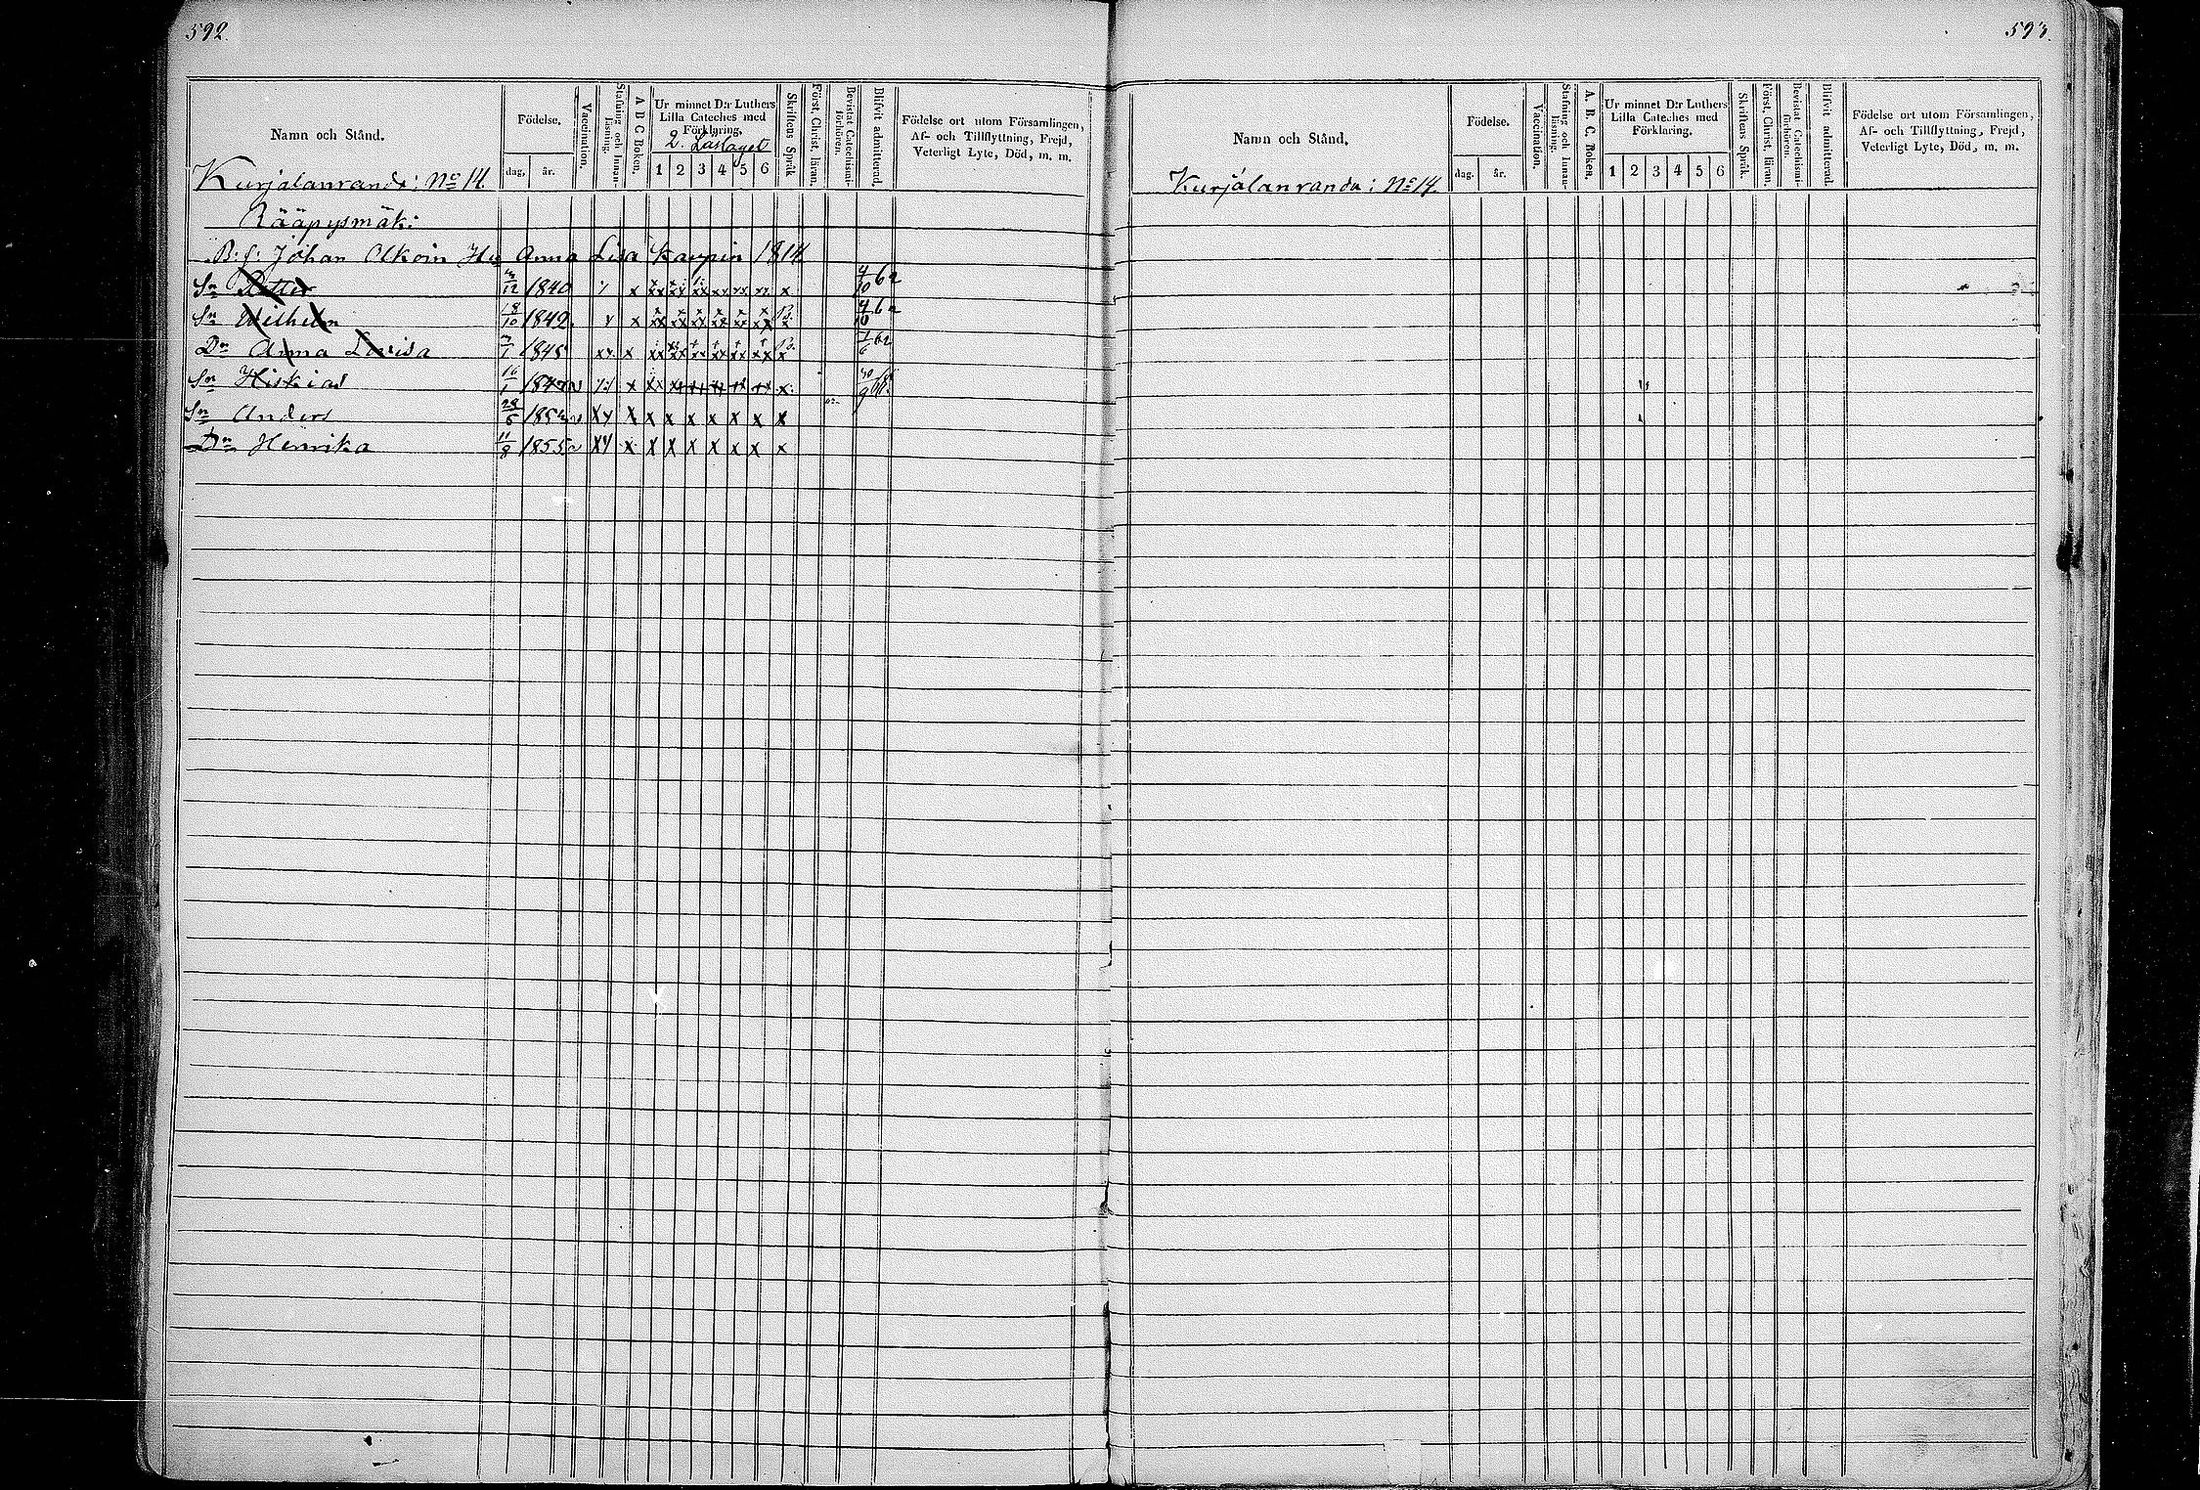 592.
Namn och Stånd.
Födelse.
dag. år.
Vaccination.
Stafning och Innanläsning.
A B C Boken.
Ur minnet D:r Luthers Lilla Cateches med Förklaring.
2. Laslaget
1 2 3 4 5 6
Skriftens Språk
Först. Christ. läran.
Bevistat Catechismiförhören.
Blifvit admitterad.
Födelse ort utom Församlingen, Af- och Tillflyttning, Frejd, Veterligt Lyte, Död, m. m.
Kurjalanranda: No 14.
Rääpysmäki
B:f: Johan Olkoin Hu Anna Lisa Kaupin 1814
Sn Petter /12 1840 x 4/10 62
Sn Wilhelm 18/10 1842. x 4/10 62
Dn Anna Lovisa 1845 x x 1/6 62
Sn Hiskias 16/1 x x
Sn Anders 28/5 x x x x x x x x
Dn Henrika 11/8 1855 x x x x x x x x
593.
Namn och Stånd.
Födelse.
dag. år.
Vaccination.
Stafning och Innanläsning.
A. B. C. Boken.
Ur minnet D:r Luthers Lilla Cateches med Förklaring.
1 2 3 4 5 6
Skriftens Språk.
Först. Christ. läran.
Bevistat Catechismiförhören.
Blifvit admitterad.
Födelse ort utom Församlingen, Af- och Tillflyttning, Frejd, Veterligt Lyte, Död, m. m.
Kurjalanranda: No 14.